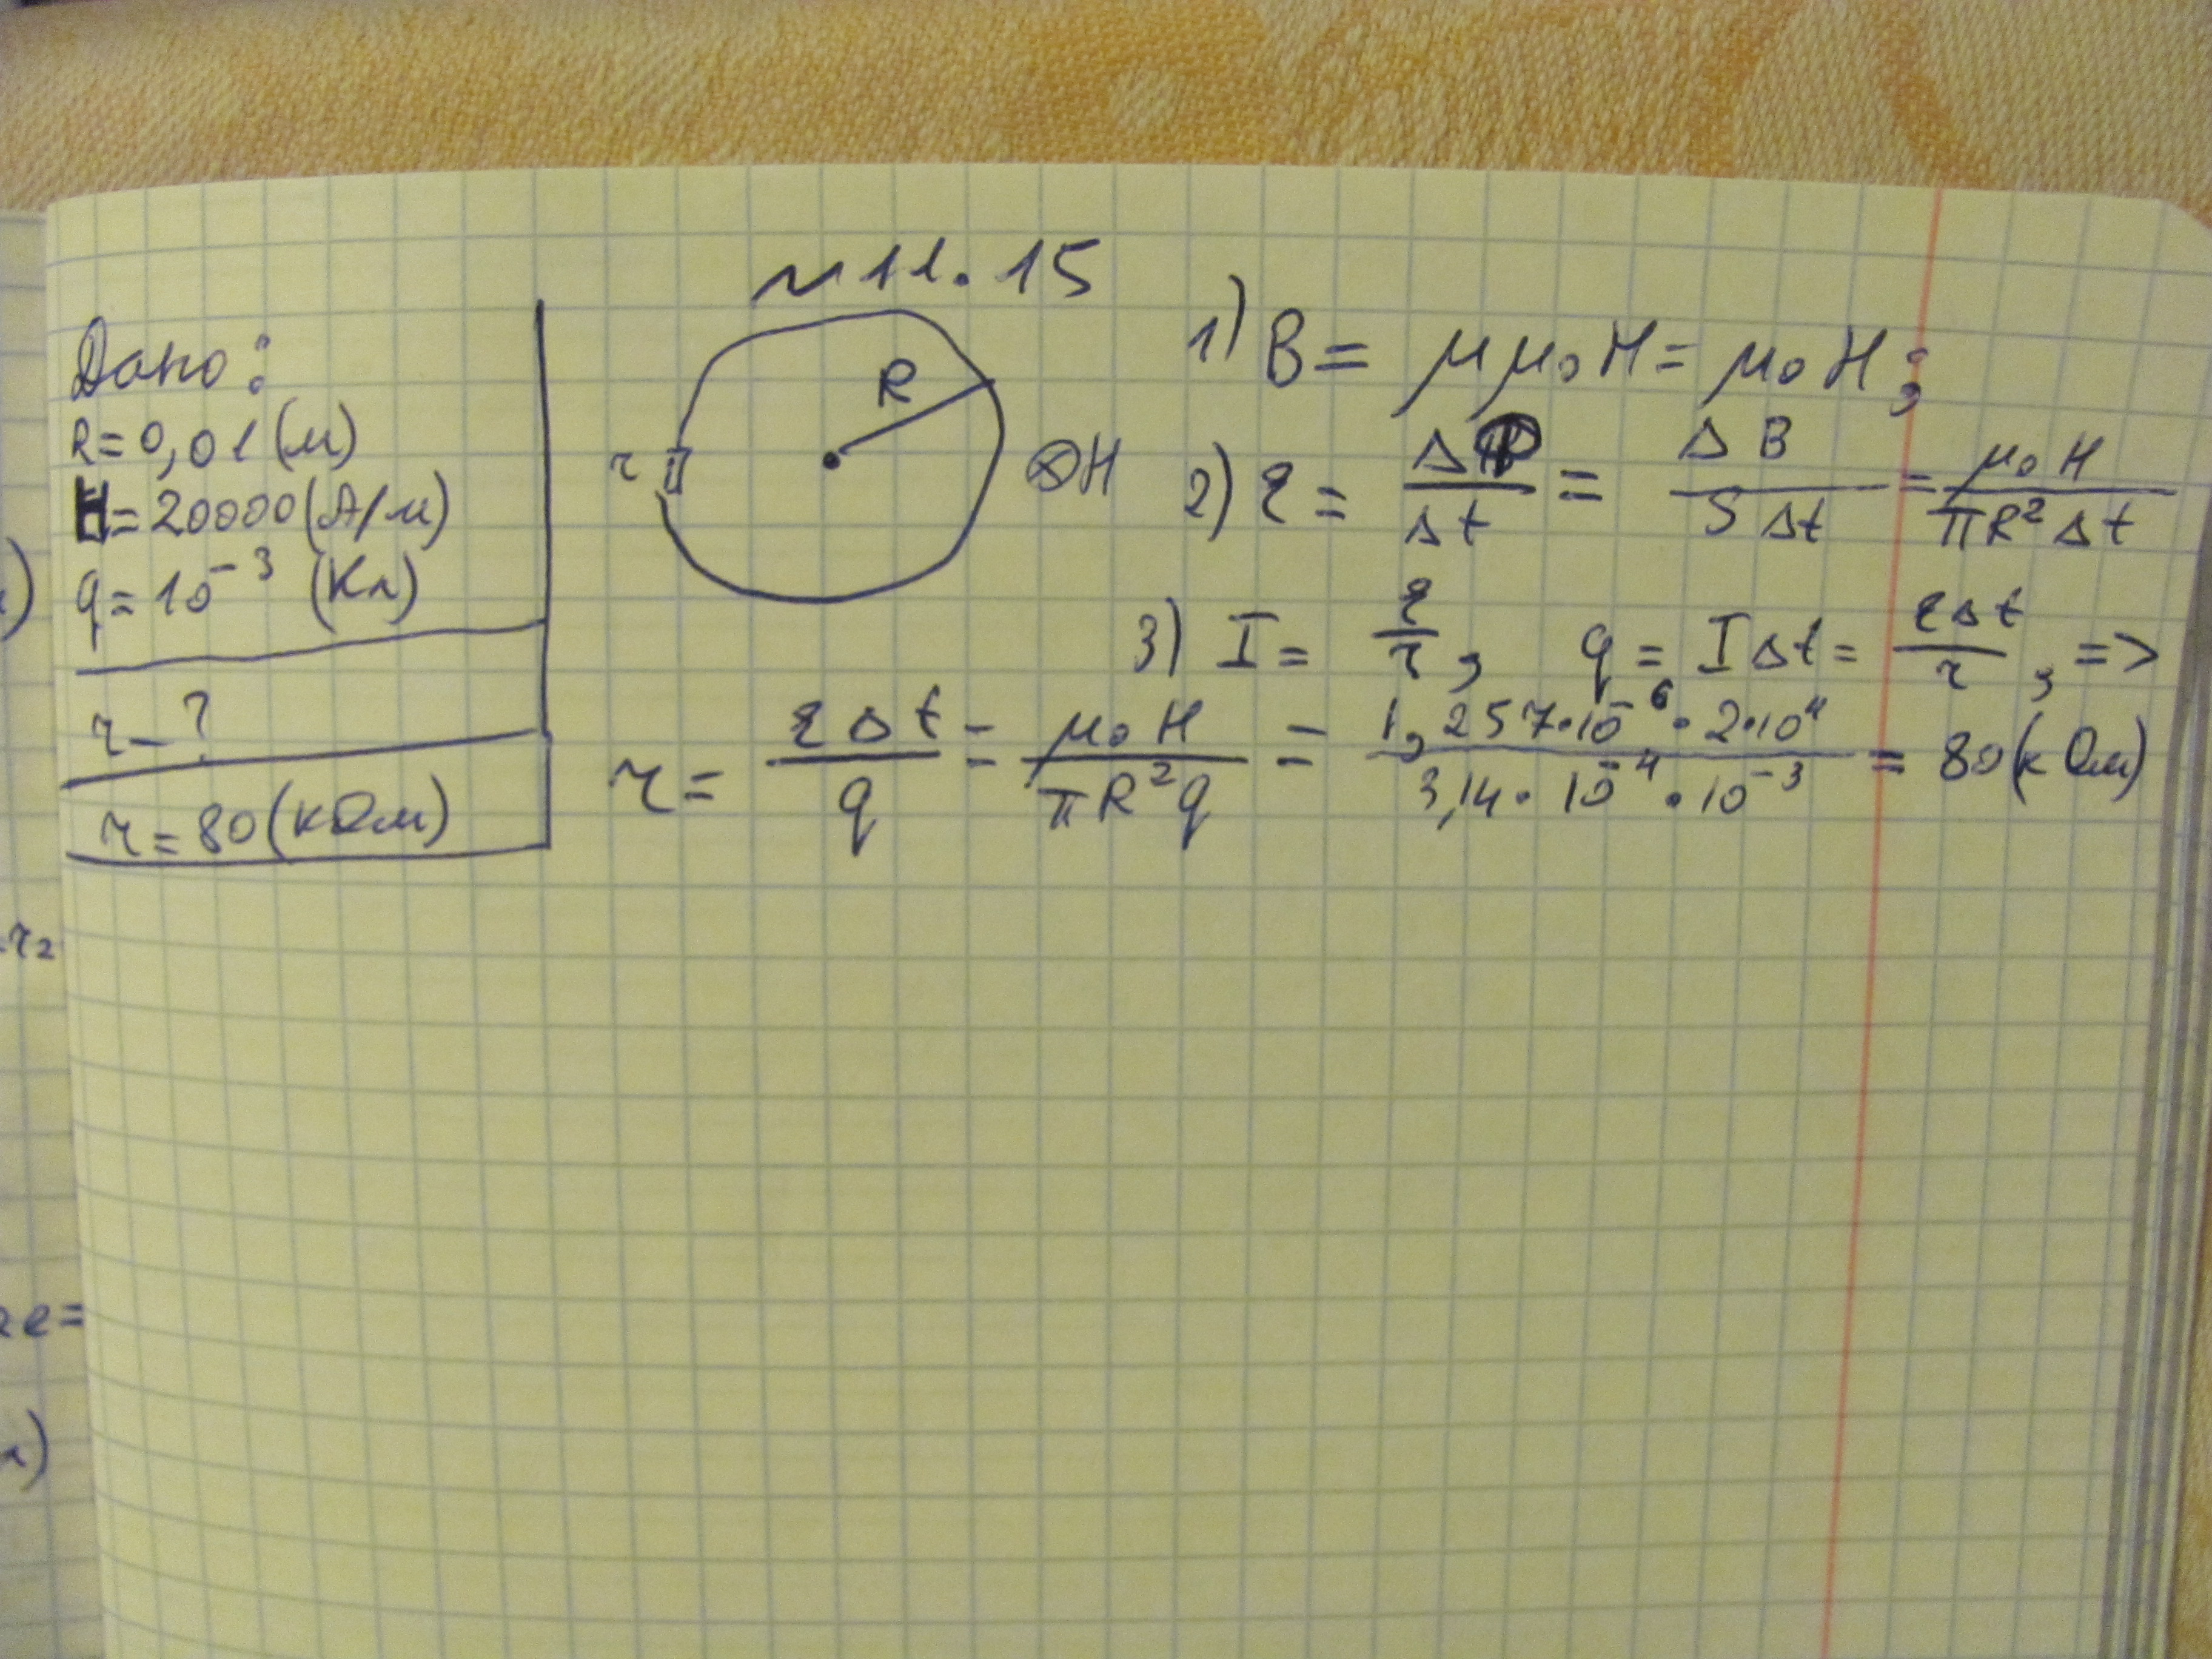 ~11.15
Дано:
R=0,01(м)
H=20000(А/м)
q=10⁻³ (Кл)
r-?
r=80(кОм)
R
r
⊗H
1) B= μμ₀H= μ₀H;
2) ε = ΔФ/Δt = ΔB/SΔt = μ₀H/πR²Δt
3) I= ε/r, q= IΔt= εΔt/r, =>
r= εΔt/q = μ₀H/πR²q = 1,257·10⁻⁶·2·10⁴/3,14·10⁻⁴·10⁻³ = 80(кОм)
-r₂
е=
)
)